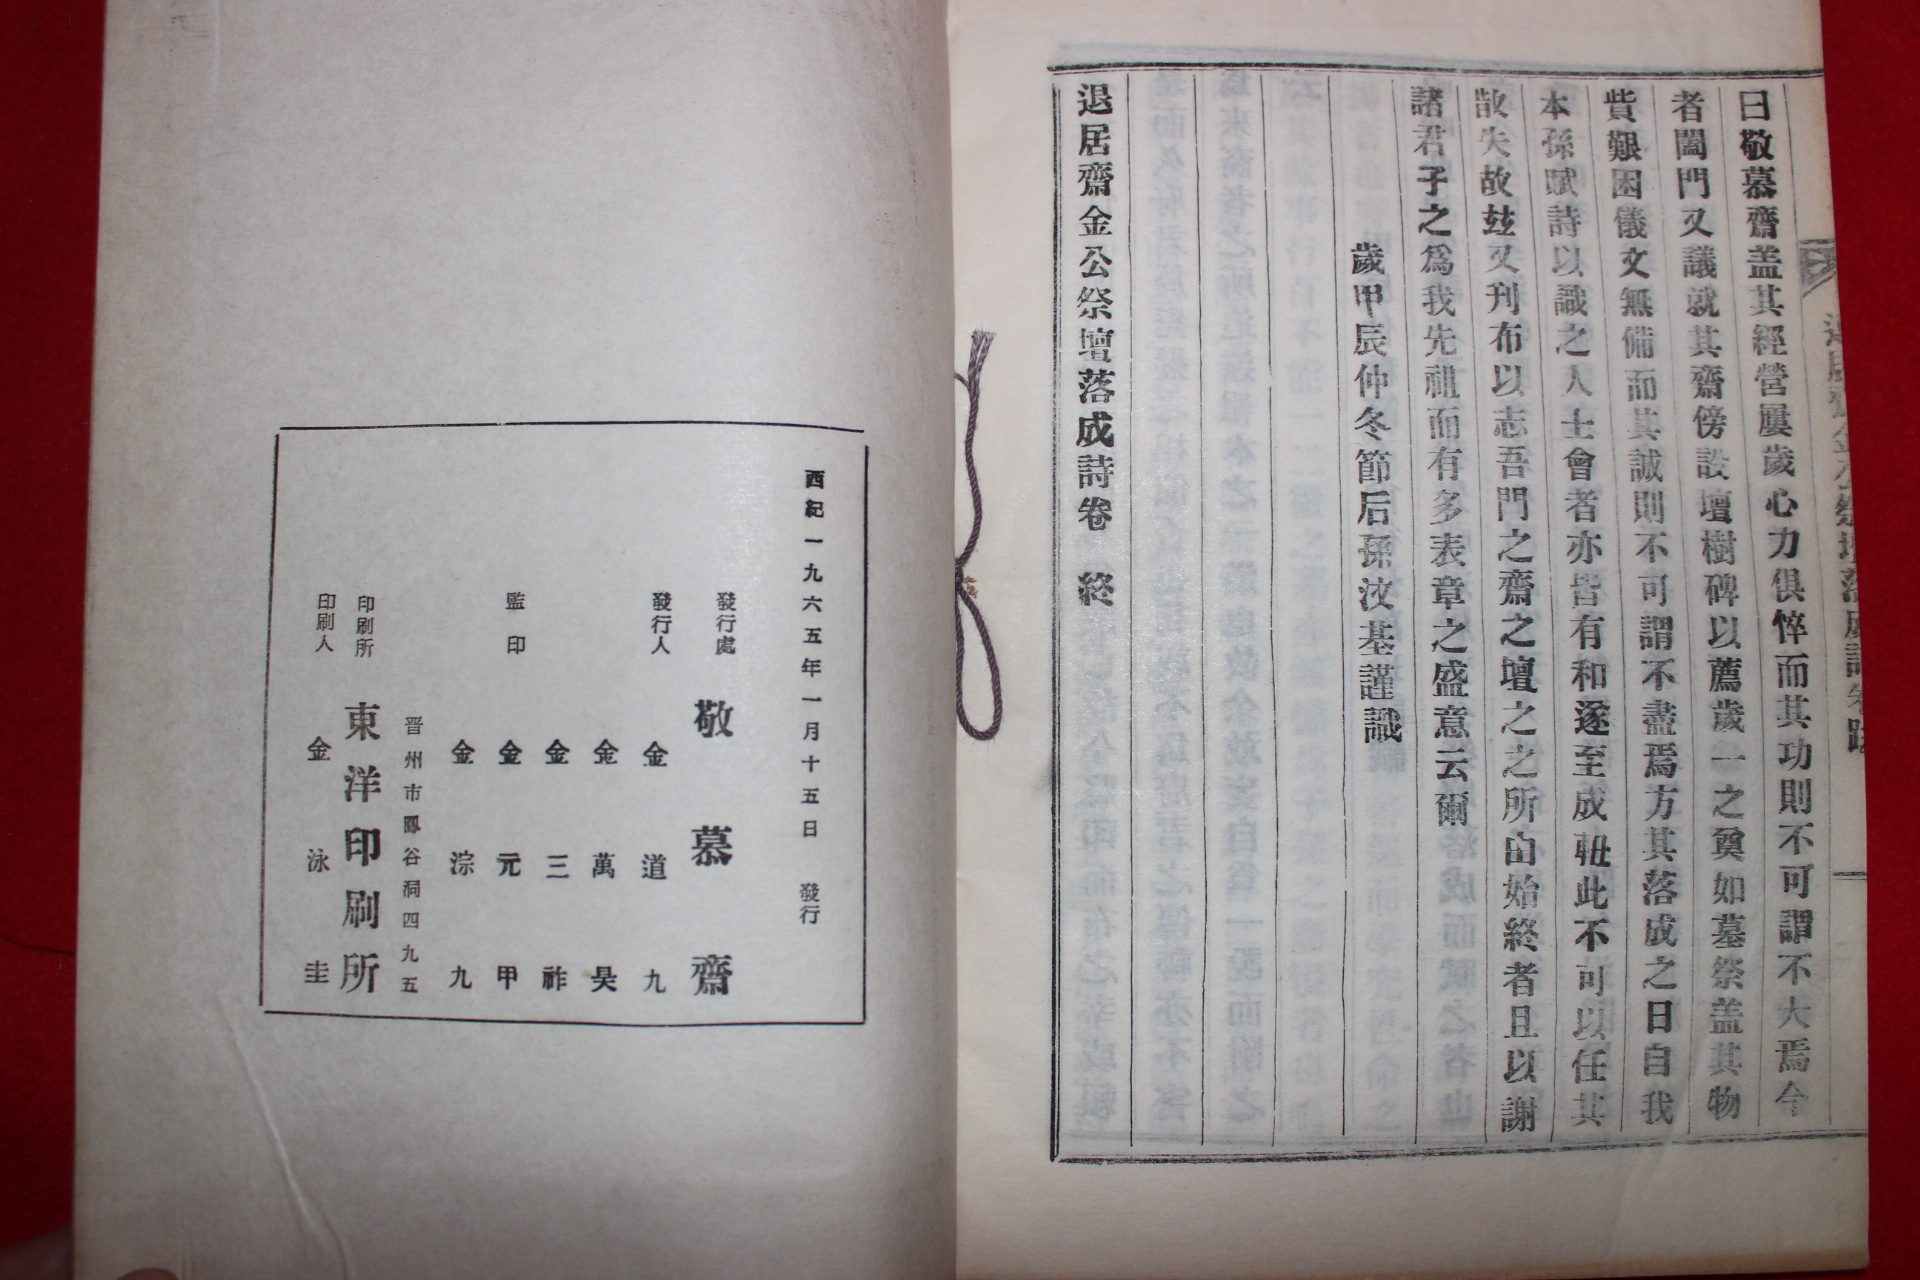 曰敬慕齋盖其經營屢歲心力俱悴而其功則不可謂不大焉今
者闔門又議就其齋傍設壇樹碑以薦歲一之奠如墓祭盖其物
貲艱困儀文無備而其誠則不可謂不盡焉方其落成之日自我
本孫賦詩以識之人士會者亦皆有和遂至成軸此不可以任其
散失故玆又刊布以志吾門之齋之壇之之所由始終者且以謝
諸君子之爲我先祖而有多表章之盛意云爾
歲甲辰仲冬節后孫汶基謹識
退居齋金公祭壇落成詩卷 終
西紀一九六五年一月十五日 發行
發行處 敬慕齋
發行人 金道九
金萬昊
監印 金三祚
金元甲
金淙九
晋州市鳳谷洞四九五
印刷所 東洋印刷所
印刷人 金泳圭